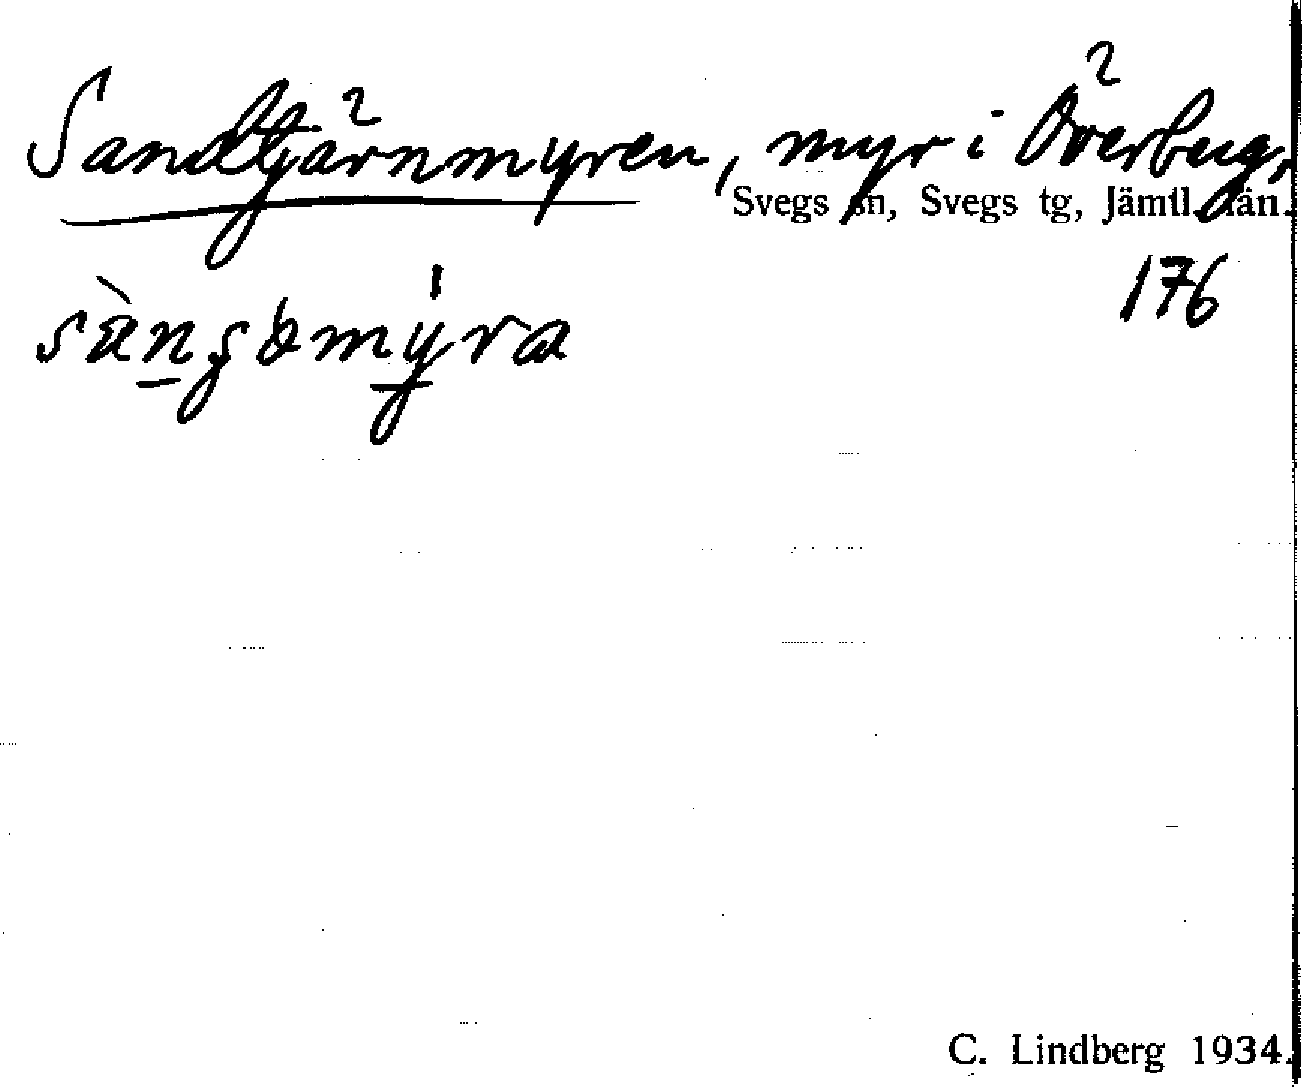 Sandtjärnmyren, myr i Överberg,
Svegs sn, Svegs tg, Jämtl. län.
176
C. Lindberg 1934.